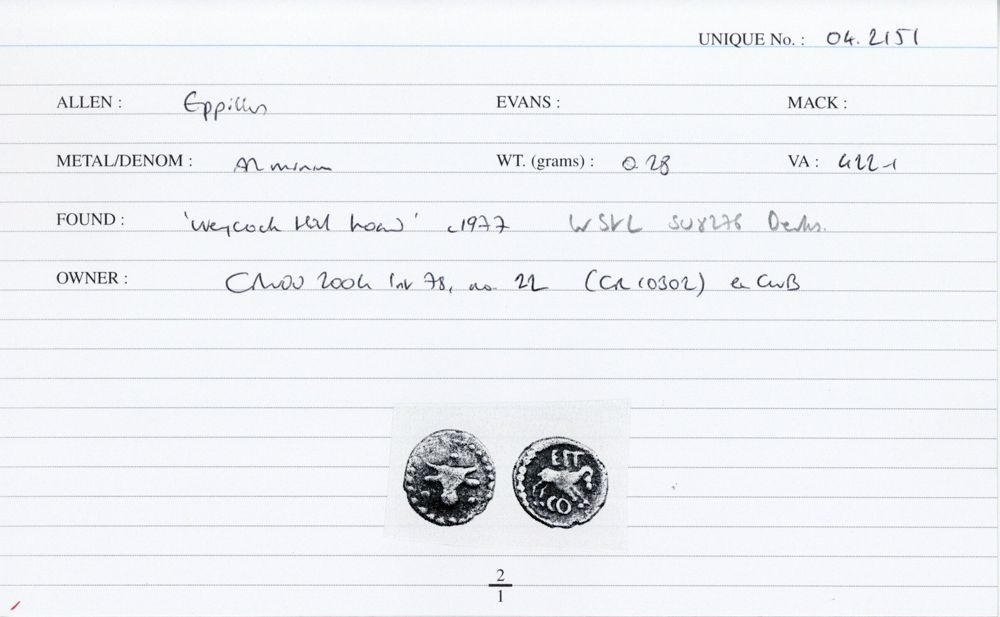 UNIQUE No. : 04.2151
ALLEN : Eppillus EVANS : MACK :
METAL/DENOM : AR minim WT. (grams) : 0.28 VA : 422-1
FOUND : 'Weycock Hill hoard' c1977 SU8276 Berks.
OWNER : 2004 Inv 78, no. 22 (CR 10302) ex CNB
EΠ
CO
2
1